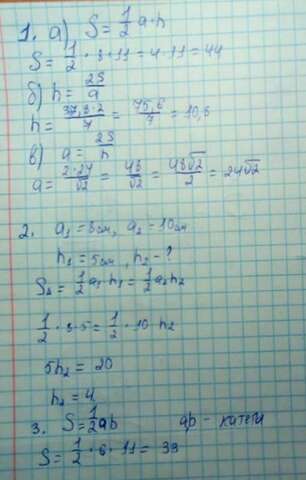 1. а) S = 1/2 a · h
S = 1/2 · 8 · 11 = 4 · 11 = 44
б) h = 2S/a
h = 37,8 · 2/7 = 75,6/7 = 10,8
в) a = 2S/h
a = 2 · 24/√2 = 48/√2 = 48√2/2 = 24√2
2. a₁ = 8 см, a₂ = 10 см
h₁ = 5 см, h₂ - ?
S_Δ = 1/2 a₁ · h₁ = 1/2 a₂h₂
1/2 · 8 · 5 = 1/2 · 10 · h₂
5h₂ = 20
h₂ = 4
3. S = 1/2 ab ab - катеты
S = 1/2 · 6 · 11 = 33